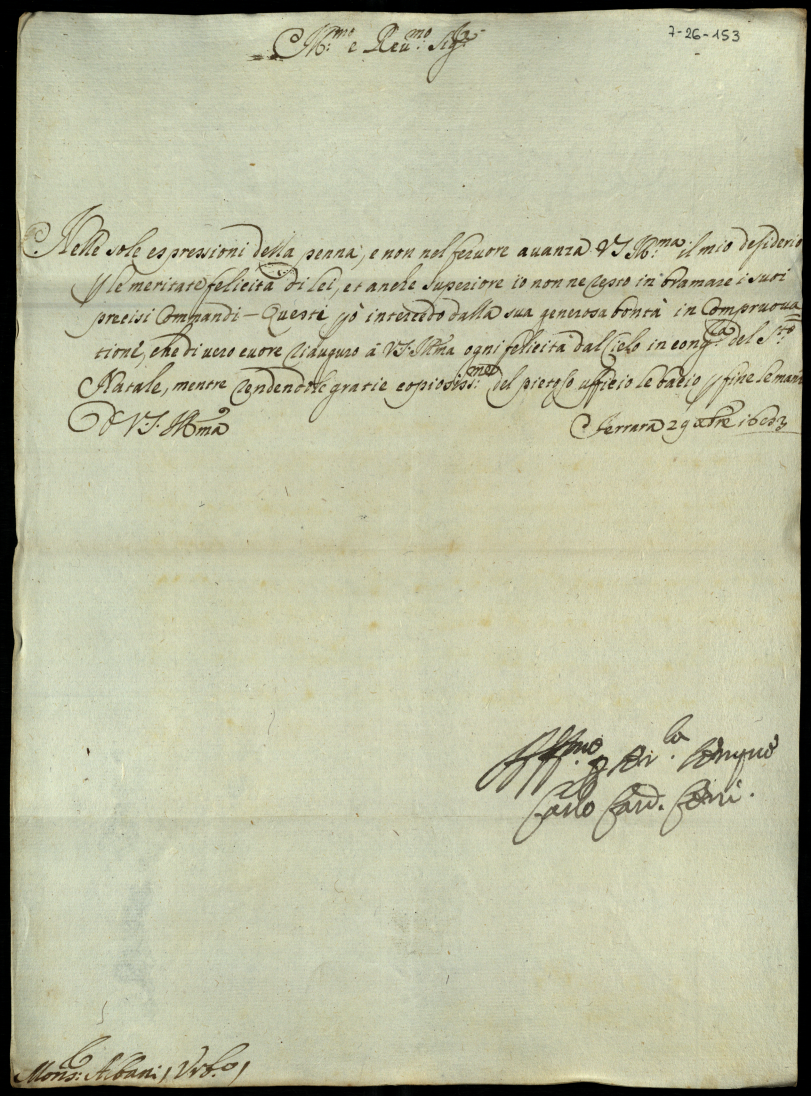 7-26-153
Ill.mo e Reu.mo Sig.r
Nelle sole espressioni della penna, e non nel feruore auanza VS Ill.ma il mio desiderio
p le meritate felicità di lei, et anche superiore io non ne resto in bramare i suoi
precisi Commandi – Questi pò intercedo dalla sua generosa bontà in Compruoua
tione, che di uero cuore riauguro à VS Illma ogni felicità dal Cielo in cong.ra del S.to
Natale, mentre rendendole gratie copiosiss.me del pietoso ufficio le bacio p fine le mani
D VS. Illma
Ferrara 29 xbre
Aff.mo p ser.la sempre
Carlo Card. Cerri.
Mons.r Albani, Vrb.o,